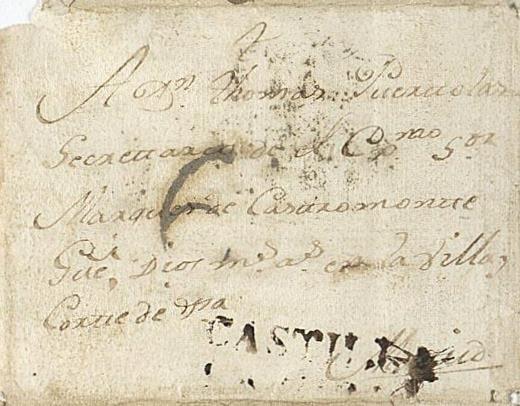 A Dn Thomas Puertolas
Secrettario de el Exmo Sor
Marques de Casttromontte
Gue Dios ms as en la Villa y
Cortte de
CASTILLA
Madrid